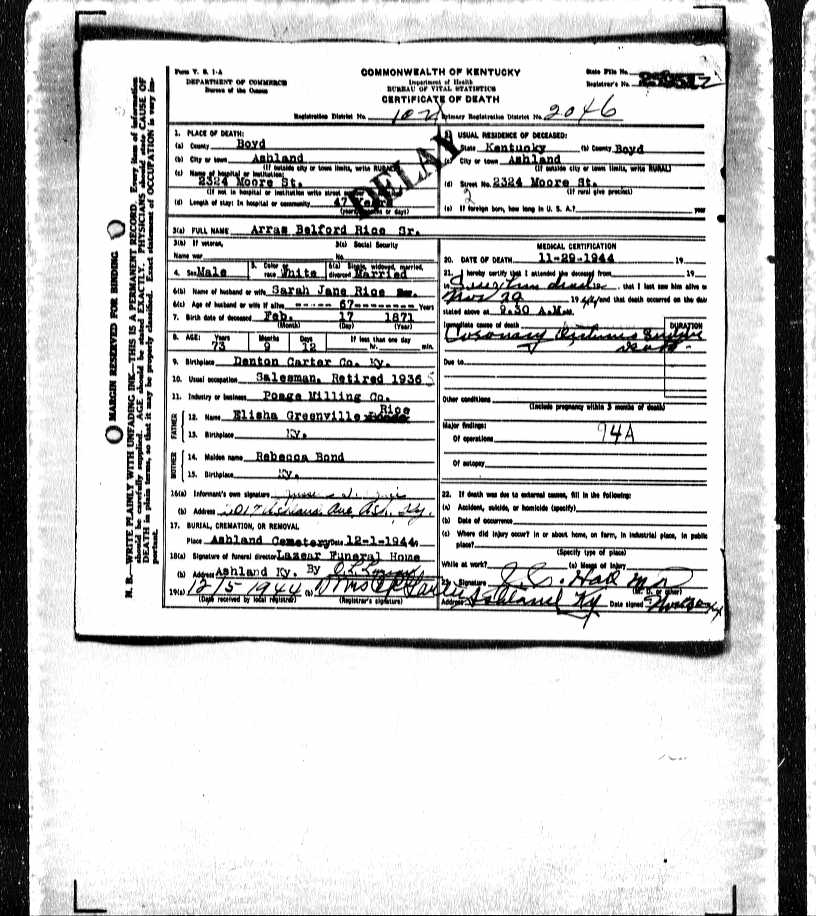 Form V. S. 1-A
DEPARTMENT OF COMMERCE
Bureau of the Census
COMMONWEALTH OF KENTUCKY
Department of Health
BUREAU OF VITAL STATISTICS
CERTIFICATE OF DEATH
State File No.
Registrar's No.
Registration District No. Primary Registration District No. 2046
DELAY
MARGIN RESERVED FOR BINDING
N. B.—WRITE PLAINLY WITH UNFADING INK—THIS IS A PERMANENT RECORD. Every item of information
should be carefully supplied. AGE should be stated EXACTLY. PHYSICIANS should state CAUSE OF
DEATH in plain terms, so that it may be properly classified. Exact statement of OCCUPATION is very im-
portant.
1. PLACE OF DEATH:
(a) County Boyd
(b) City or town Ashland
(If outside city or town limits, write RURAL)
(c) Name of hospital or institution:
2324 Moore St.
(If not in hospital or institution write street
(d) Length of stay: In hospital or community 47 Years
(years, months or days)
USUAL RESIDENCE OF DECEASED:
State Kentucky (b) County Boyd
(c) City or town Ashland
(If outside city or town limits, write RURAL)
(d) Street No. 2324 Moore St.
(If rural give precinct)
2
(e) If foreign born, how long in U. S. A.? year
3(a) FULL NAME Arras Belford Rice Sr.
3(b) If veteran,
Name war
3(c) Social Security
No.
4. Sex Male
5. Color or
race White
6(a) Single, widowed, married,
divorced Married
6(b) Name of husband or wife Sarah Jane Rice
6(c) Age of husband or wife if alive 67 Years
7. Birth date of deceased Feb. 17 1871
(Month) (Day) (Year)
8. AGE: Years Months Days If less than one day
73 9 12 hr. min.
9. Birthplace Denton Carter Co. Ky.
10. Usual occupation Salesman. Retired 1936
11. Industry or business Poage Milling Co.
FATHER
12. Name Elisha Greenville Rice
13. Birthplace Ky.
MOTHER
14. Maiden name Rebecca Bond
15. Birthplace Ky.
16(a) Informant's own signature
(b) Address Ave, Ash, Ky.
17. BURIAL, CREMATION, OR REMOVAL
Place Ashland Cemetery Date 12-1-1944
18(a) Signature of funeral director Lazear Funeral Home
(b) Address Ashland Ky. By
19(a) 12/5 1944 (b) Mrs
(Date received by local registrar) (Registrar's signature)
MEDICAL CERTIFICATION
20. DATE OF DEATH 11-29-1944 19
21. I hereby certify that I attended the deceased from 19
that I last saw him alive on
Nov 29 1944 and that death occurred on the date
stated above at 9.30 A.M.
Immediate cause of death DURATION
Coronary
Due to
Other conditions
(Include pregnancy within 3 months of death)
Major findings:
Of operations 94A
Of autopsy
22. If death was due to external causes, fill in the following:
(a) Accident, suicide, or homicide (specify)
(b) Date of occurrence
(c) Where did injury occur? In or about home, on farm, in industrial place, in public
place?
(Specify type of place)
While at work? (e) Means of injury
23. Signature
(M. D. or other)
Address Ashland Ky Date signed